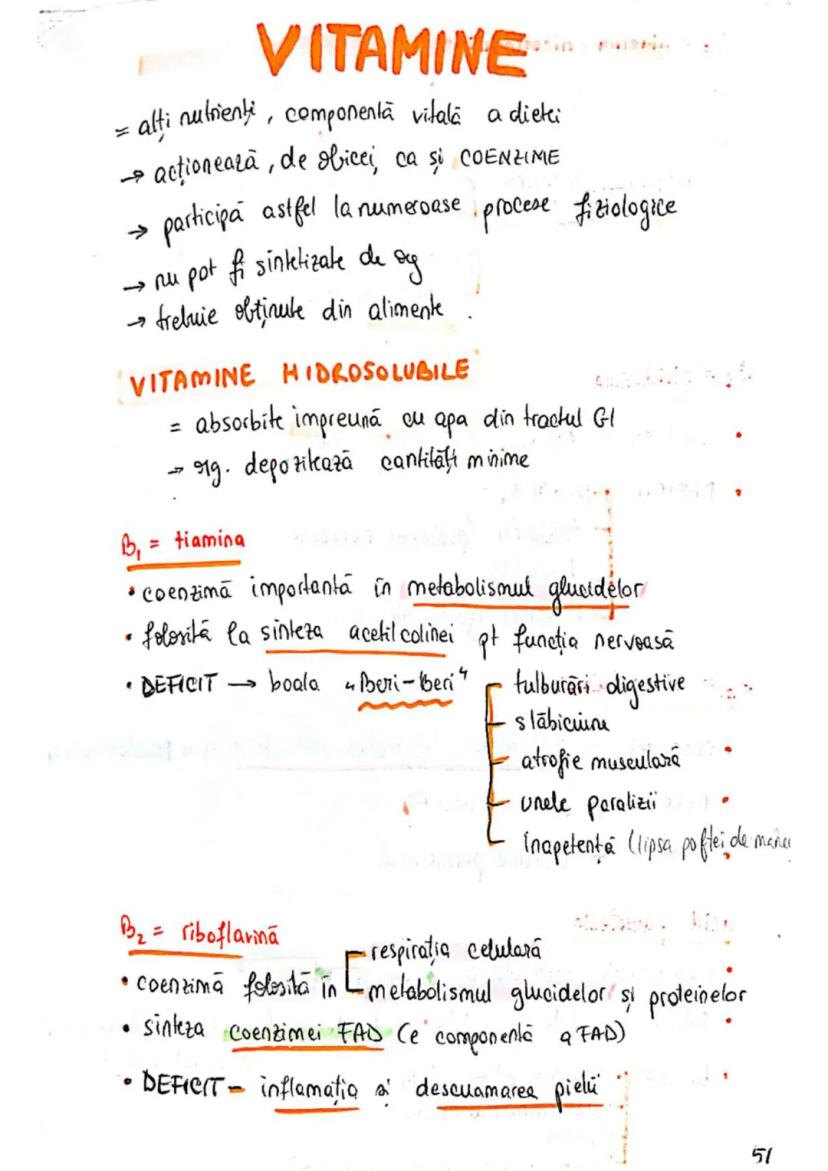 VITAMINE
= alți nutrienți, componentă vitală a dietei
→ acționează, de obicei, ca și COENZIME
→ participă astfel la numeroase procese fiziologice
→ nu pot fi sintetizate de org
→ trebuie obținute din alimente.
VITAMINE HIDROSOLUBILE
= absorbite împreună cu apa din tractul GI
→ org. depozitează cantități minime
B₁ = tiamina
• coenzimă importantă în metabolismul glucidelor
• folosită la sinteza acetilcolinei pt funcția nervoasă
• DEFICIT → boala "Beri-Beri"
tulburări digestive
slăbiciune
atrofie musculară
unele paralizii
inapetență (lipsa poftei de
B₂ = riboflavină
• coenzimă folosită în
respirația celulară
metabolismul glucidelor și proteinelor
• sinteza coenzimei FAD (e componentă a FAD)
• DEFICIT - inflamația și descuamarea pielii
51